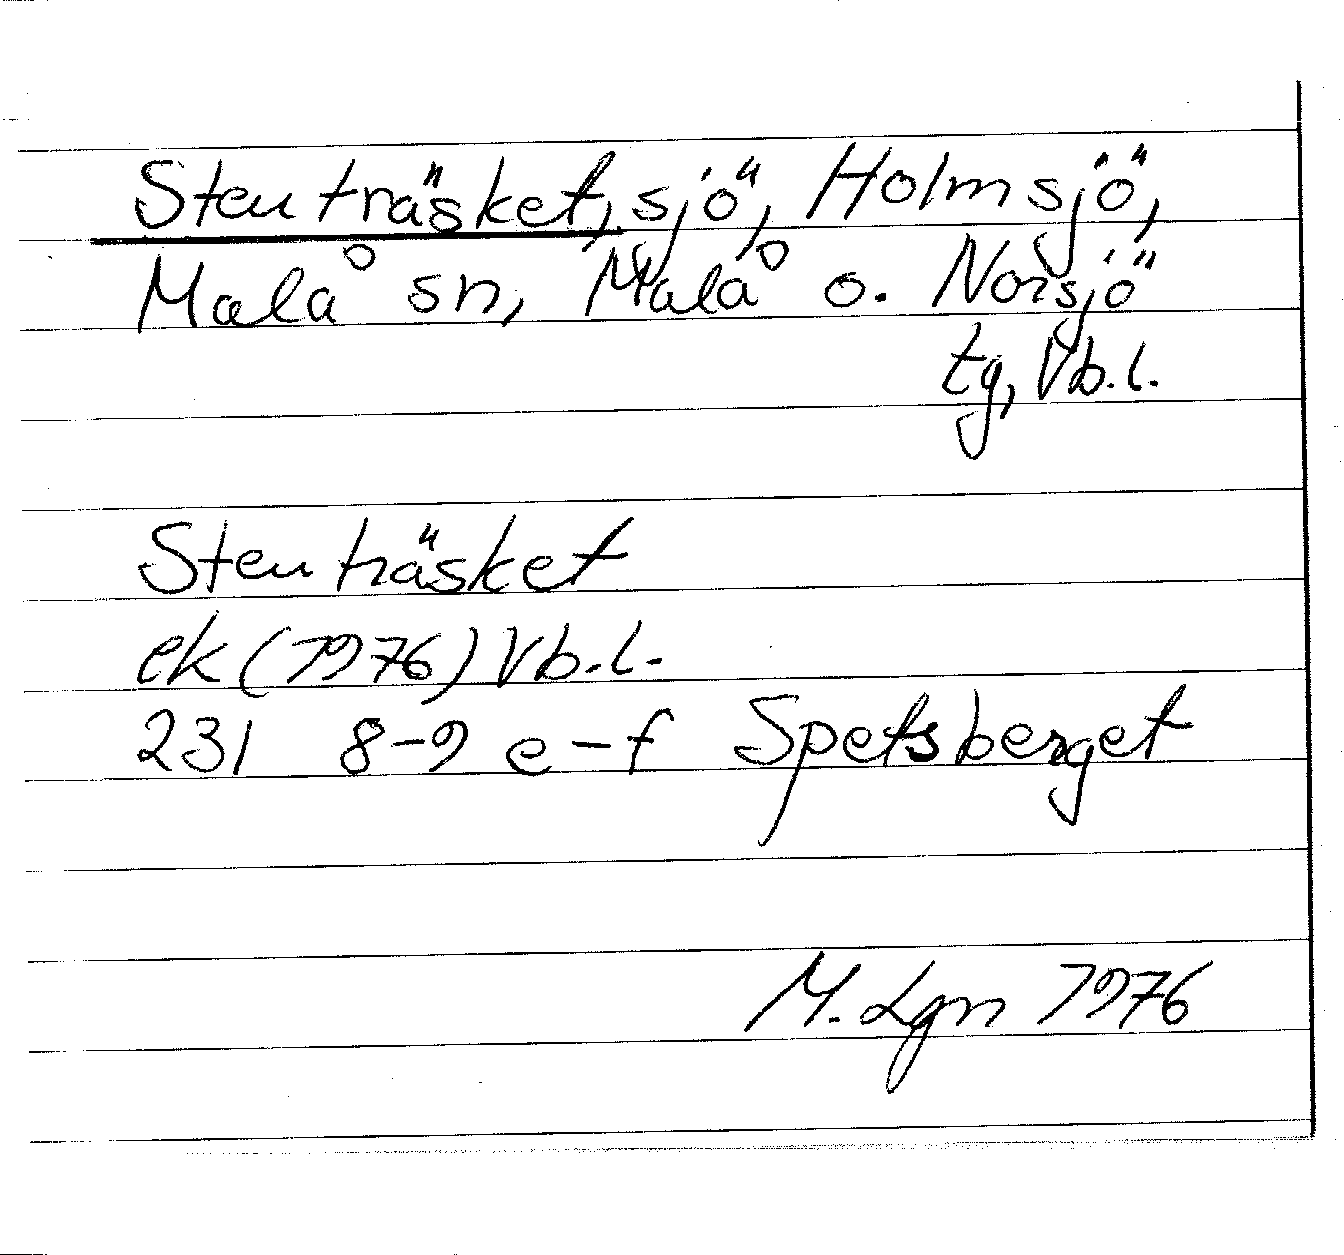 Stenträsket, sjö, Holmsjö,
Malå sn, Malå o. Norsjö
tg, Vb.l.
Stenträsket
ek (1976) Vb.l.
231 8-9 e-f Spetsberget
M. Lgn 1976